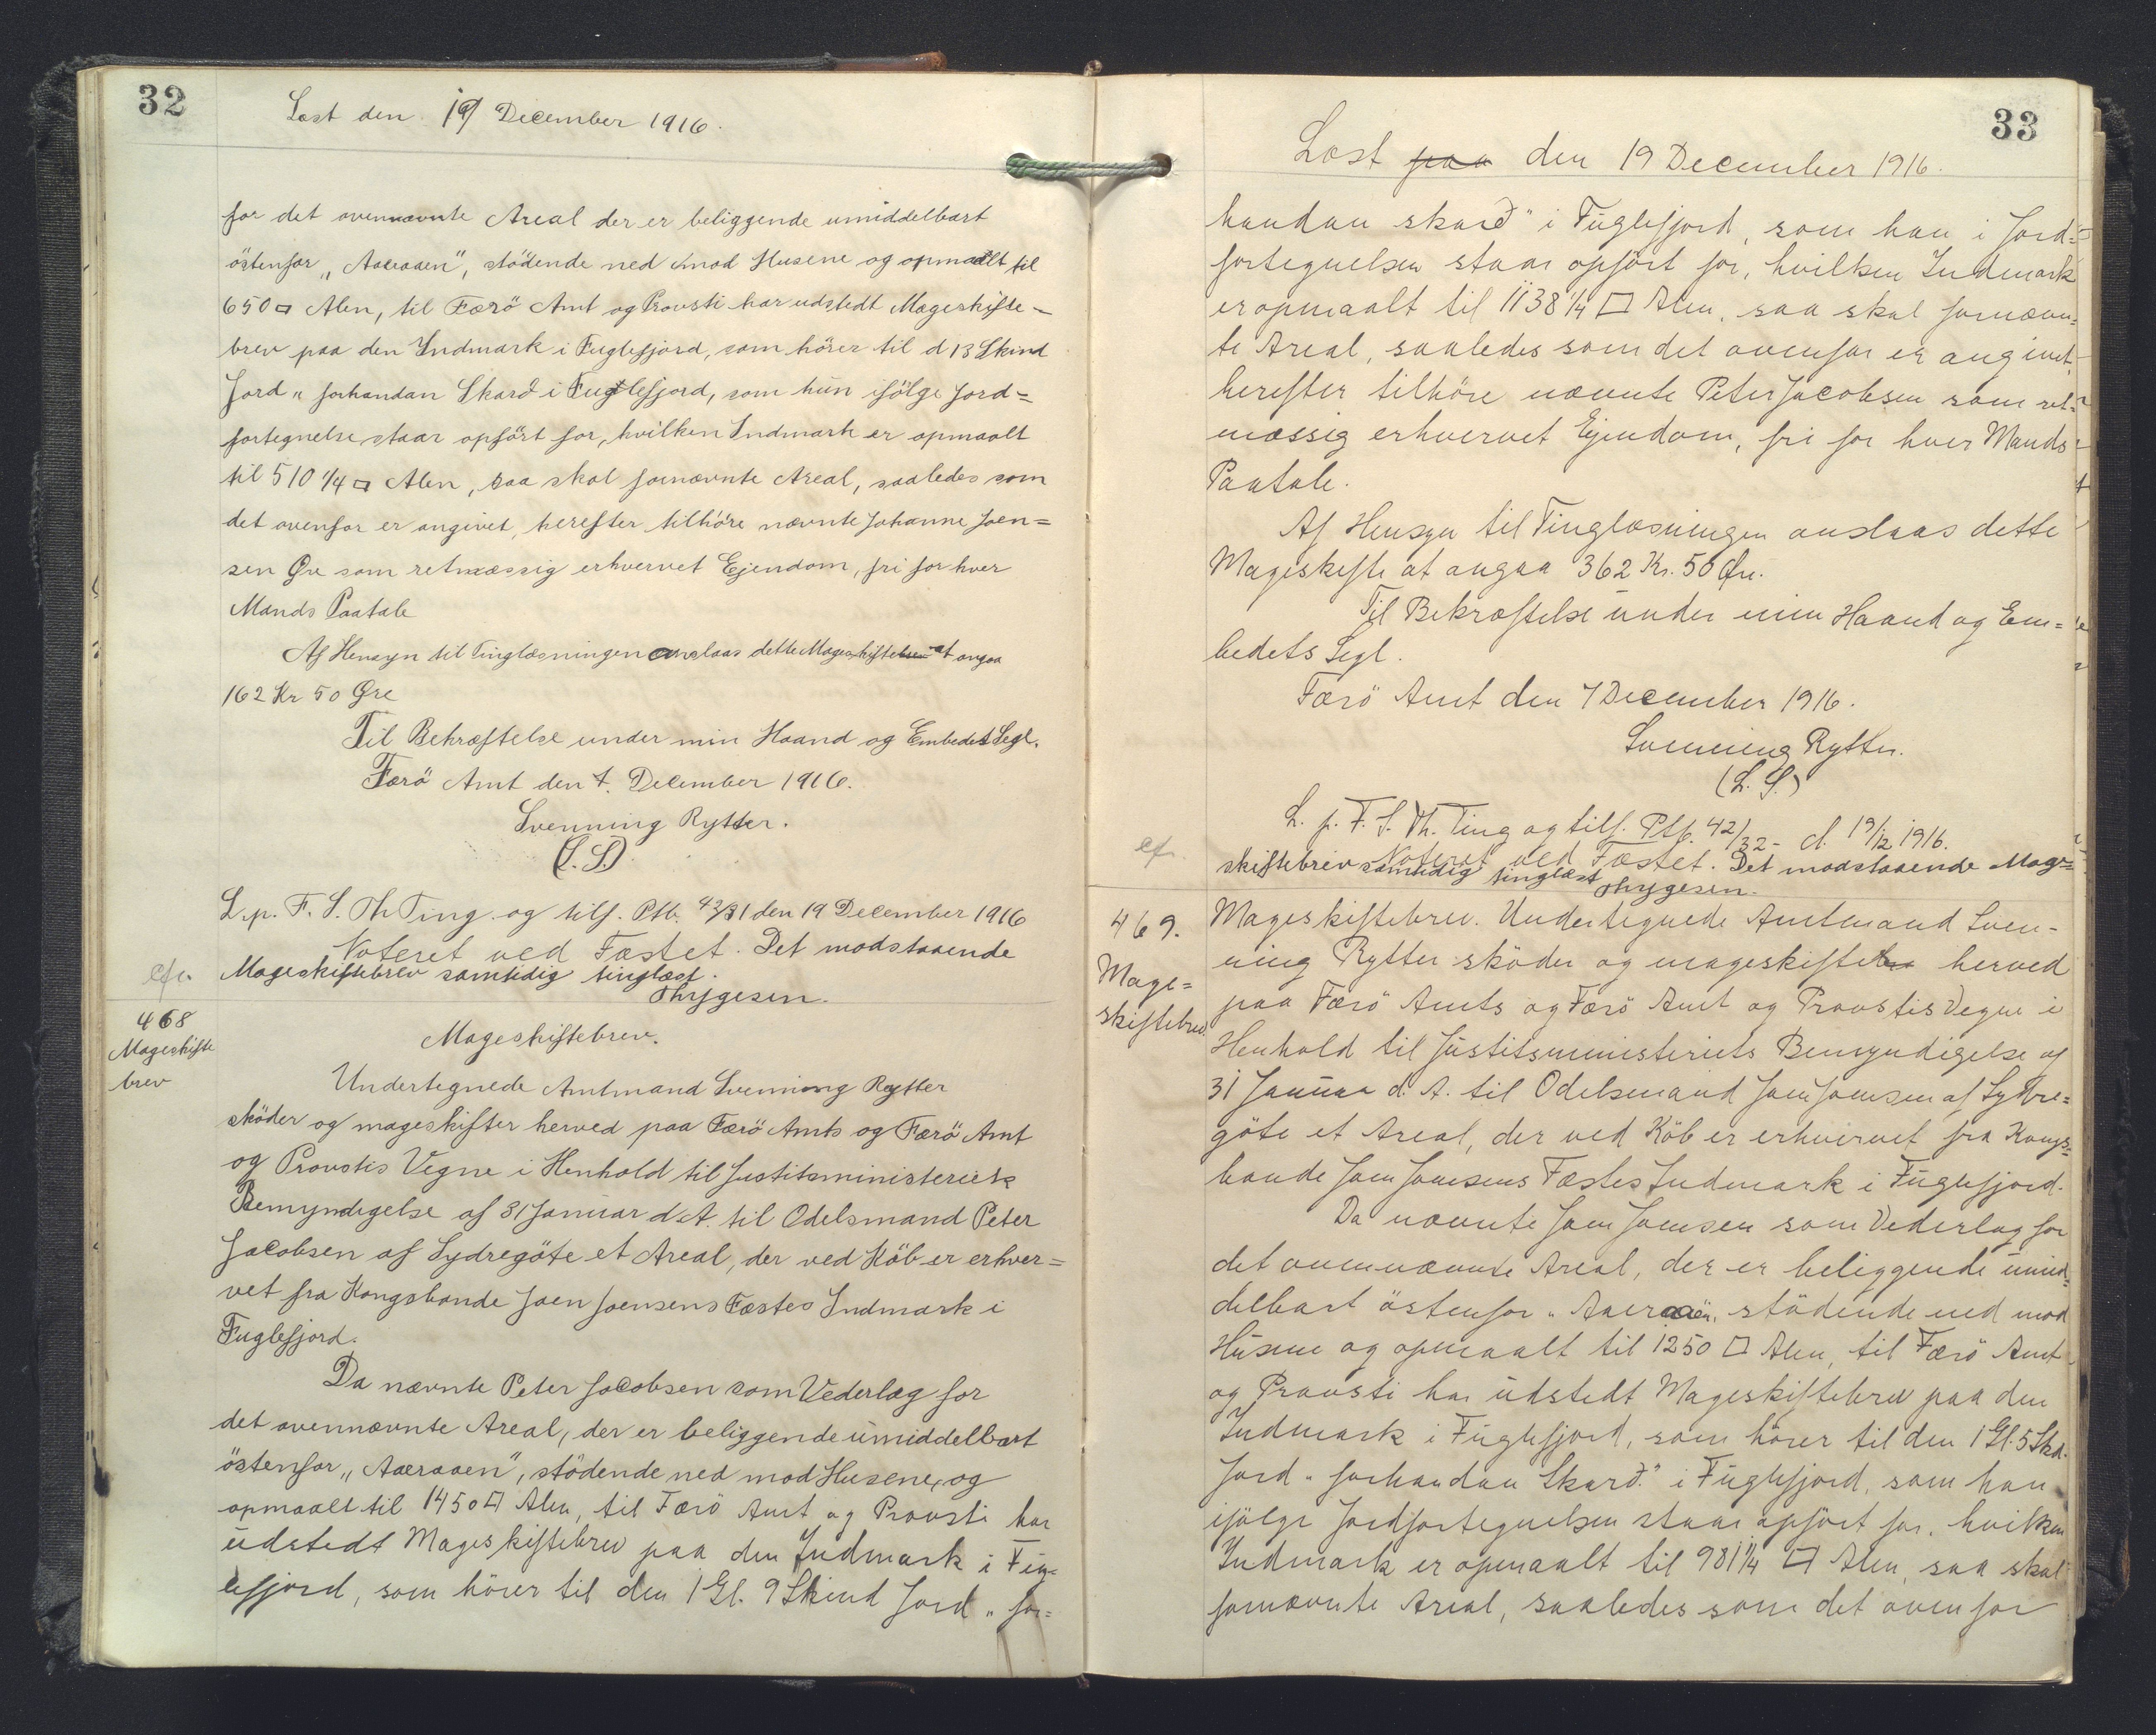 32
Læst den 19 December 1916.
for det ovennævnte Areal der er beliggende umiddelbart
östenfor „Aaeraaen", stödende ned mod Husene og opmaalt til
650 □ Alen, til Færö Amt og Provsti har udstedt Mageskifte-
brev paa den Indmark i Fuglefjord, som hörer til d 13 Skind
Jord „ forhandan Skard i Fuglefjord, som hun ifölge Jord=
fortegnelse staar opfört for, hvilken Indmark er opmaalt
til 510 1/4 □ Alen, saa skal fornævnte Areal, saaledes som
det ovenfor er angivet, herefter tilhöre nævnte Johanne Joen=
sen Øre som retmæssig erhvervet Ejendom, fri for hver
Mands Paatale
Af Hensyn til Tinglæsningen anslaas dette Mageskifte at angaa
162 Kr 50 Øre
Til Bekræftelse under min Haand og Embedets Segl.
Færö Amt den 7. December 1916.
Svenning Rytter.
(L. S.)
L. p. F. S. Th Ting og tilf. Ptb. 42/31 den 19 December 1916
Noteret ved Fæstet. Det modstaaende
cfr. Mageskiftebrev samtidig tinglæst.
Thygesen.
468
Mageskifte
brev
Mageskiftebrev.
Undertegnede Amtmand Svenning Rytter
sköder og mageskifter herved paa Færö Amts og Færö Amt
og Provstis Vegne i Henhold til Justitsministeriets
Bemyndigelse af 31 Januar d.A. til Odelsmand Peter
Jacobsen af Sydregöte et Areal, der ved Köb er erhver=
vet fra Kongsbonde Joen Joensens Fæstes Indmark i
Fuglefjord.
Da nævnte Peter Jacobsen som Vederlag for
det ovennævnte Areal, der er beliggende umiddelbart
östenfor „Aaeraaen", stödende ned mod Husene, og
opmaalt til 1450 □ Alen, til Færö Amt og Provsti har
udstedt Mageskiftebrev paa den Indmark i Fug=
lefjord, som hörer til den 1 Gl. 9 Skind Jord „ for=
33
Læst paa den 19 December 1916.
handan skarð" i Fuglefjord, som han i Jord=
fortegnelsen staar opfört for, hvilken Indmark
er opmaalt til 1138 1/4 □ Alen, saa skal fornævn=
te Areal, saaledes som det ovenfor er angivet,
herefter tilhöre nævnte Peter Jacobsen som ret=
mæssig erhvervet Ejendom, fri for hver Mands
Paatale.
Af Hensyn til Tinglæsningen anslaas dette
Mageskifte at angaa 362 Kr. 50 Øre.
Til Bekræftelse under min Haand og Em=
bedets Segl.
Færö Amt den 7 December 1916.
Svenning Rytter.
(L. S.)
L. p. F. S. Th. Ting og tilf. Ptb. 42/32 - d. 19/12 1916.
cfr. Noteret ved Fæstet. Det modstaaende Mage=
skiftebrev samtidig tinglæst
Thygesen.
469.
Mage=
skiftebrev.
Mageskiftebrev. Undertegnede Amtmand Sven-
ning Rytter sköder og mageskifter herved
paa Færö Amts og Færö Amt og Provstis Vegne i
Henhold til Justitsministeriets Bemyndigelse af
31 Januar d. A. til Odelsmand Joen Joensen af Sydre=
göte et Areal, der ved Köb er erhvervet fra Kongs=
bonde Joen Joensens Fæstes Indmark i Fuglefjord.
Da nævnte Joen Joensen som Vederlag for
det ovennævnte Areal, der er beliggende umid=
delbart östenfor „Aaeraaen, stödende ned mod
Husene og opmaalt til 1250 □ Alen, til Færö Amt
og Provsti har udstedt Mageskiftebrev paa den
Indmark i Fuglefjord, som hörer til den 1 Gl. 5 Skd.
Jord „ forhandan Skarð." i Fuglefjord, som han
ifölge Jordfortegnelsen staar opfört for, hvilken
Indmark er opmaalt til 981 1/4 □ Alen, saa skal
fornævnte Areal, saaledes som det ovenfor